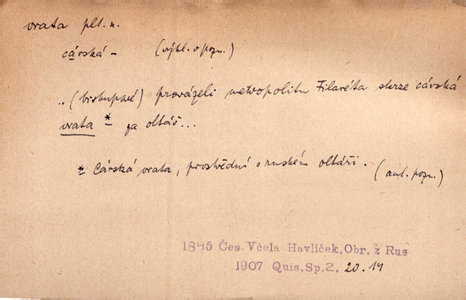 vrata plt. n.
cárská – (výkl. v pozn.)
„(biskupové) provázeli metropolitu Filaréta skrze cárská
vrata * za oltář...
* Cárská vrata, prostřední v ruském oltáři. (aut. pozn.)
1845 Čes. Včela Havlíček, Obr. z Rus
1907 Quis, Sp. 2, 20.14